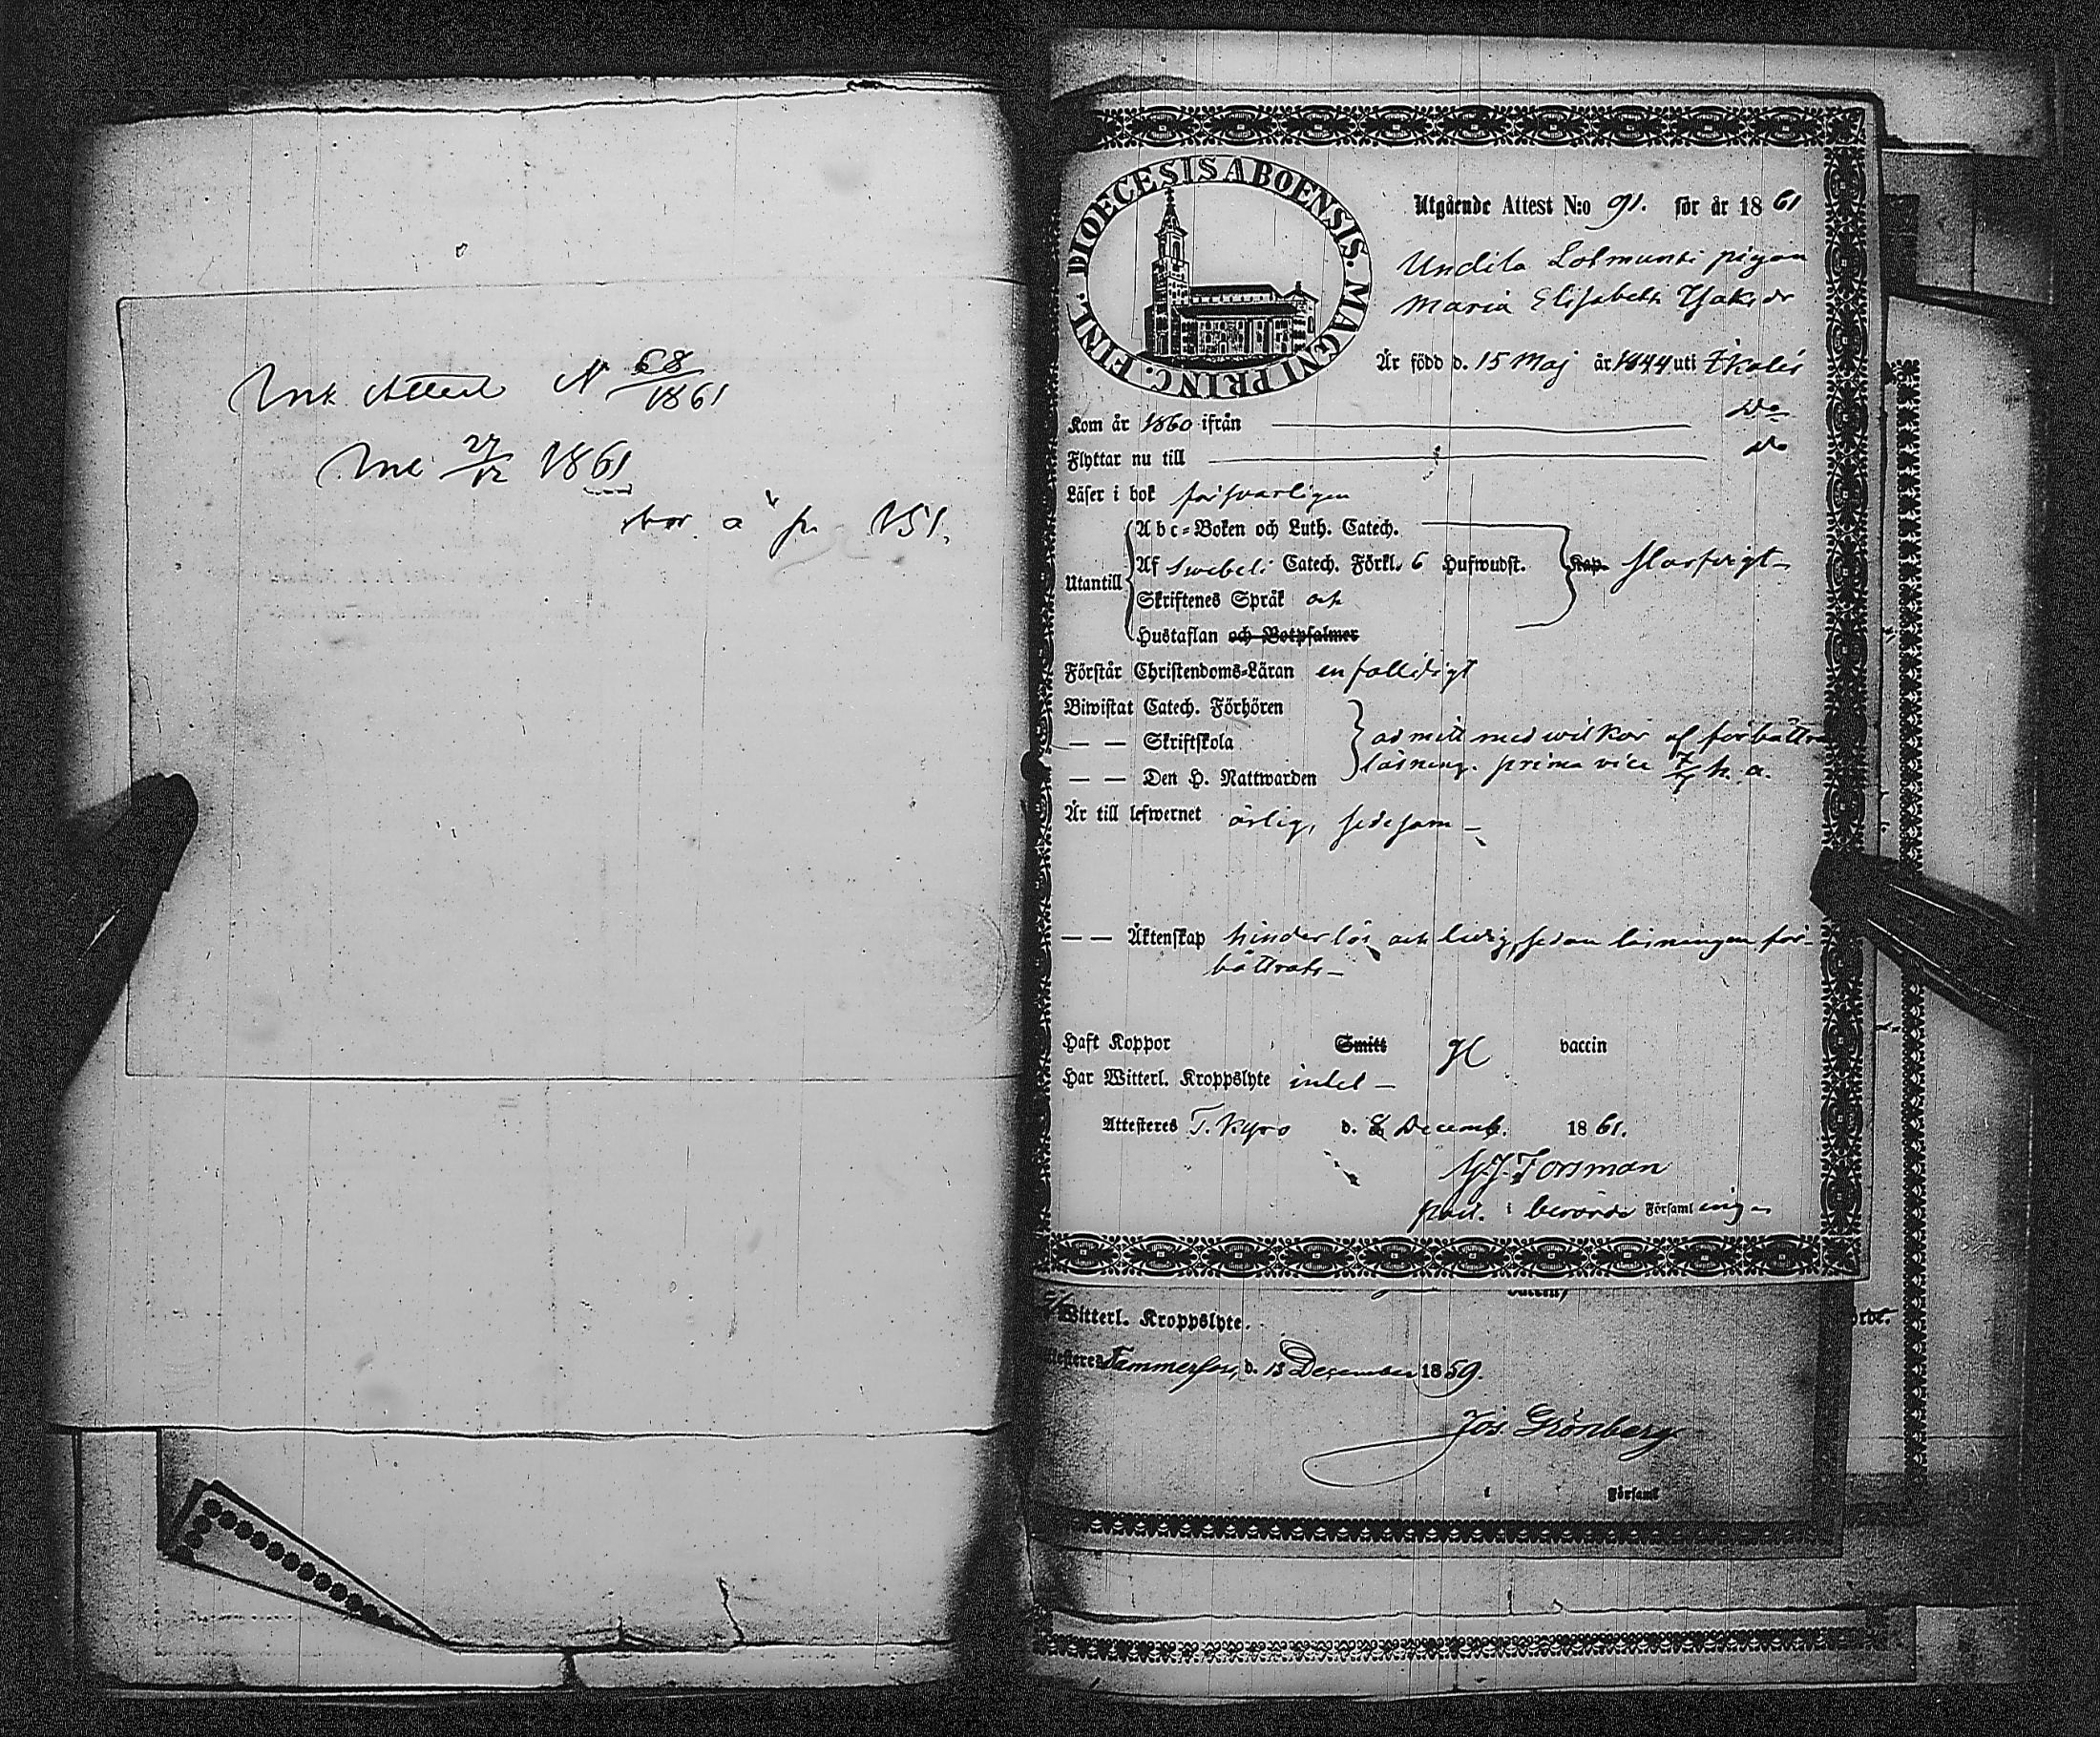 Ink Attest N 68/1861
Ink 27/12 1861
bor å p 151.
DIOECESIS ABOENSIS. MAGNI PRINC. FINL.
Utgående Attest N:o 91. för år 1861
Undila Lotmunti pigan
Maria Elisabeth Isaks dr
Är född d. 15 Maj år 1844 uti Ikalis
Kom år 1860 ifrån do
Flyttar nu till do
Läser i bok försvarligen
Utantill
Abc-Boken och Luth. Catech.
Af Swebeli Catech. Förkl. 6 Hufwudst. Kap.
Skriftenes Språk och
Hustaflan och Botpsalmer
Förstår Christendoms-Läran enfalldigt
Biwistat Catech. Förhören
— — Skriftskola admitt med wilkor af förbättra
— — Den H. Nattwarden läsning. prima vice h. a.
Är till lefwernet ärlig, sedesam —
— — Äktenskap hinderlös och ledig, sedan läsningen för-
bättrats —
Haft Koppor Smitt vaccin
Har Witterl. Kroppslyte intet —
Attesteres T. Kyro d. 8 Decemb. 1861.
Forsman
past. i berörde Församling
Witterl. Kroppslyte.
Tammerfors, d. 13 December 1859.
Jos. Grönberg
i Församl